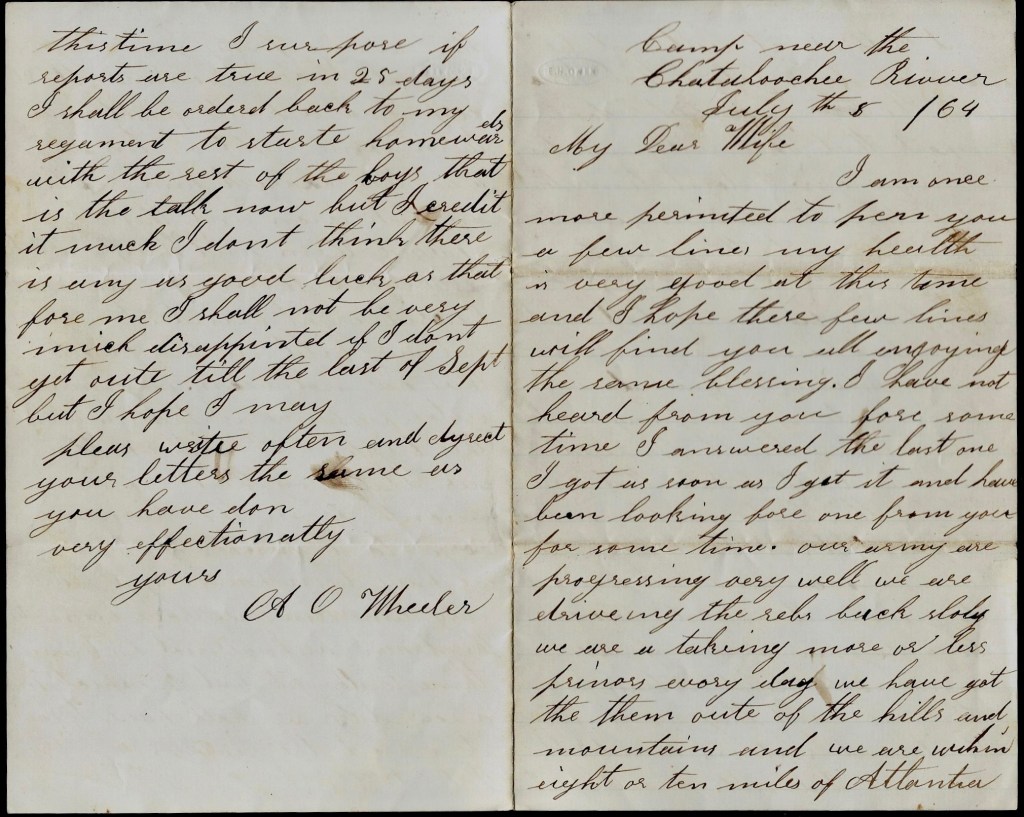 Camp near the
Chataloochee Rivver
July th 8 /64
My Dear Wife
I am once
more perimted to pen you
a few lines my health
is very good at this time
and I hope these few lines
will find you all enjoying
the same blessing. I have not
heard from you fore some
time I answered the last one
I got as soon as I got it and have
been looking fore one from you
for some time. our army are
progressing very well we are
driveing the rebs back sloly
we are a takeing more or less
prinors evory day we have got
the them oute of the hills and
mountains and we are within
eight or ten miles of Atlantia
this time I surpose if
reports are true in 25 days
I shall be orderd back to my
regament to starte homewards
with the rest of the boys that
is the talk now but I credit
it much I dont think there
is any as good luck as that
fore me I shall not be very
much disappinted if I dont
get oute till the last of Sept
but I hope I may
pleas write often and dyrect
your letters the same as
you have don
very effectionatly
yours
A O Wheeler